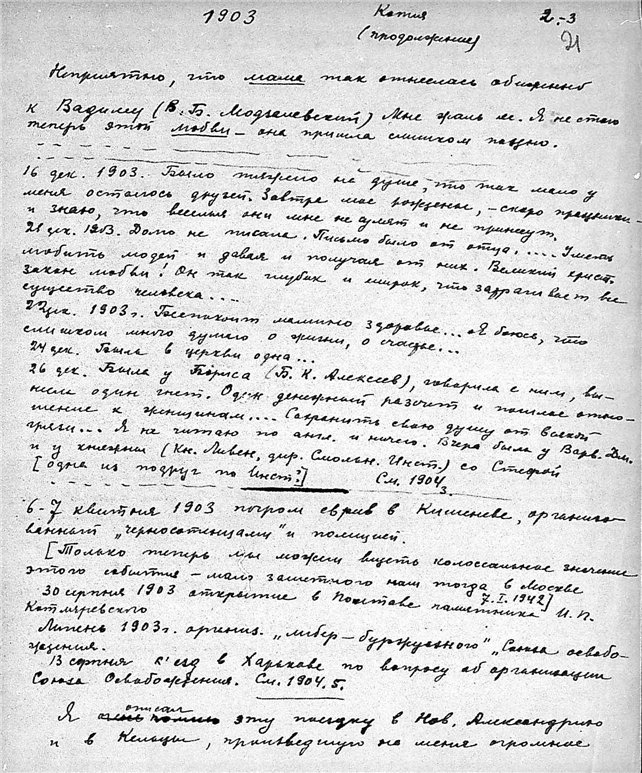 1903 Катя 2.-3
(продолжение) 21
Неприятно, что мама так отнеслась обиженно
к Вадиму (В. Б. Модзалевский) Мне жаль ее. Я не стою
теперь этой любви – она пришла слишком поздно.
16 дек. 1903. Было тяжело на душе, что так мало у
меня осталось друзей. Завтра мое рожденье, – скоро праздники –
и знаю, что веселья они мне не сулят и не принесут.
21 дек. 1903. Долго не писала. Письмо было от отца. .... Уметь
любить людей и давая и получая от них. Великий христ.
закон любви! Он так глубок и широк, что затрагивает все
существо человека....
22 дек. 1903 г. Беспокоит мамино здоровье... Я боюсь, что
слишком много думаю о жизни, о счастье...
24 дек. Была в церкви одна...
26 дек. Была у Бориса (Б. К. Алексеев), говорила с ним, вы-
несла один гнет. Один денежный разсчет и пошлое отно-
шение к женщинам.... Сохранить свою душу от всякой
грязи... Я не читаю по англ. и ничего. Вчера была у Варв. Дм.
и у княжны (Кн. Ливен, дир. Смольн. Инст.) со Стефой
[одна из подруг по Инст.?] См. 1904.
3.
6-7 квітня 1903 погром евреев в Кишеневе, организо-
ванный „черносотенцами" и полицией.
[Только теперь мы можем видеть колоссальное значение
этого события – мало заметного нам тогда в Москве
7. I. 1942]
30 серпня 1903 открытие в Полтаве памятника И. П.
Котляревского
Липень 1903 г. организ. „либер – буржуазного" „Союза освобо-
ждения.
13 серпня с'езд в Харькове по вопросу об организации
Союза Освобождения. См. 1904. 5.
описал
Я очень помню эту поездку в Нов. Александрию
и в Кельцы, произведшую на меня огромное